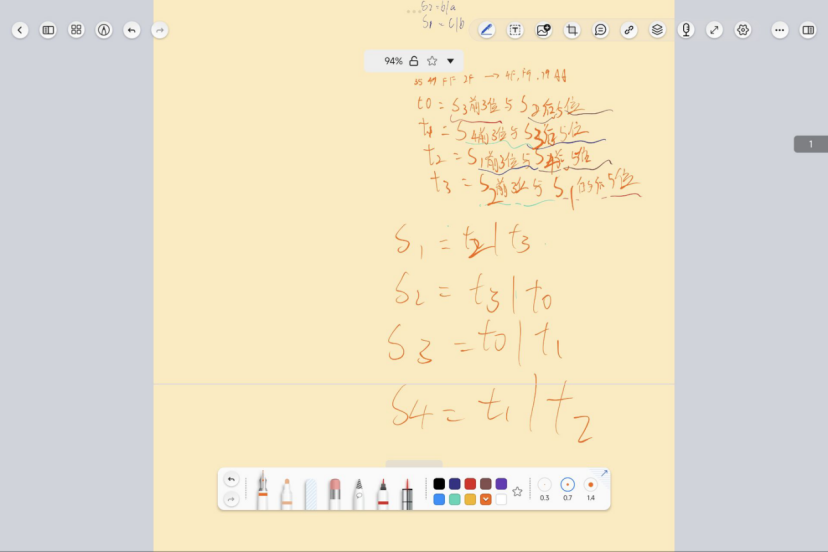 S2=b/a
S1=c/b
94%
t0=S3前3位与S2后5位
t1=S4前3位与S3后5位
t2=S1前3位与S4后5位
t3=S2前3位与S1的后5位
S1=t2|t3
S2=t3|t0
S3=t0|t1
S4=t1|t2
1
0.3 0.7 1.4